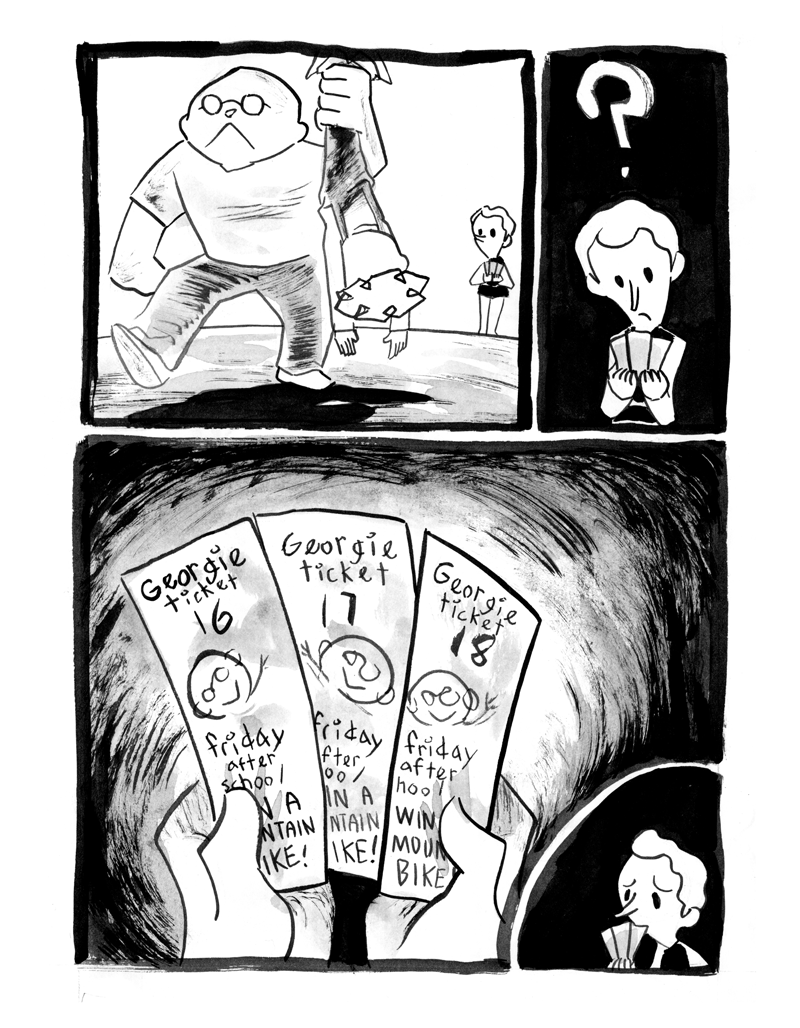 ?
Georgie
ticket
16
friday
after
school
N A
NTAIN
IKE!
Georgie
ticket
17
friday
fter
ool
IN A
NTAIN
IKE!
Georgie
ticket
18
friday
after
hool
WIN
MOUN
BIKE